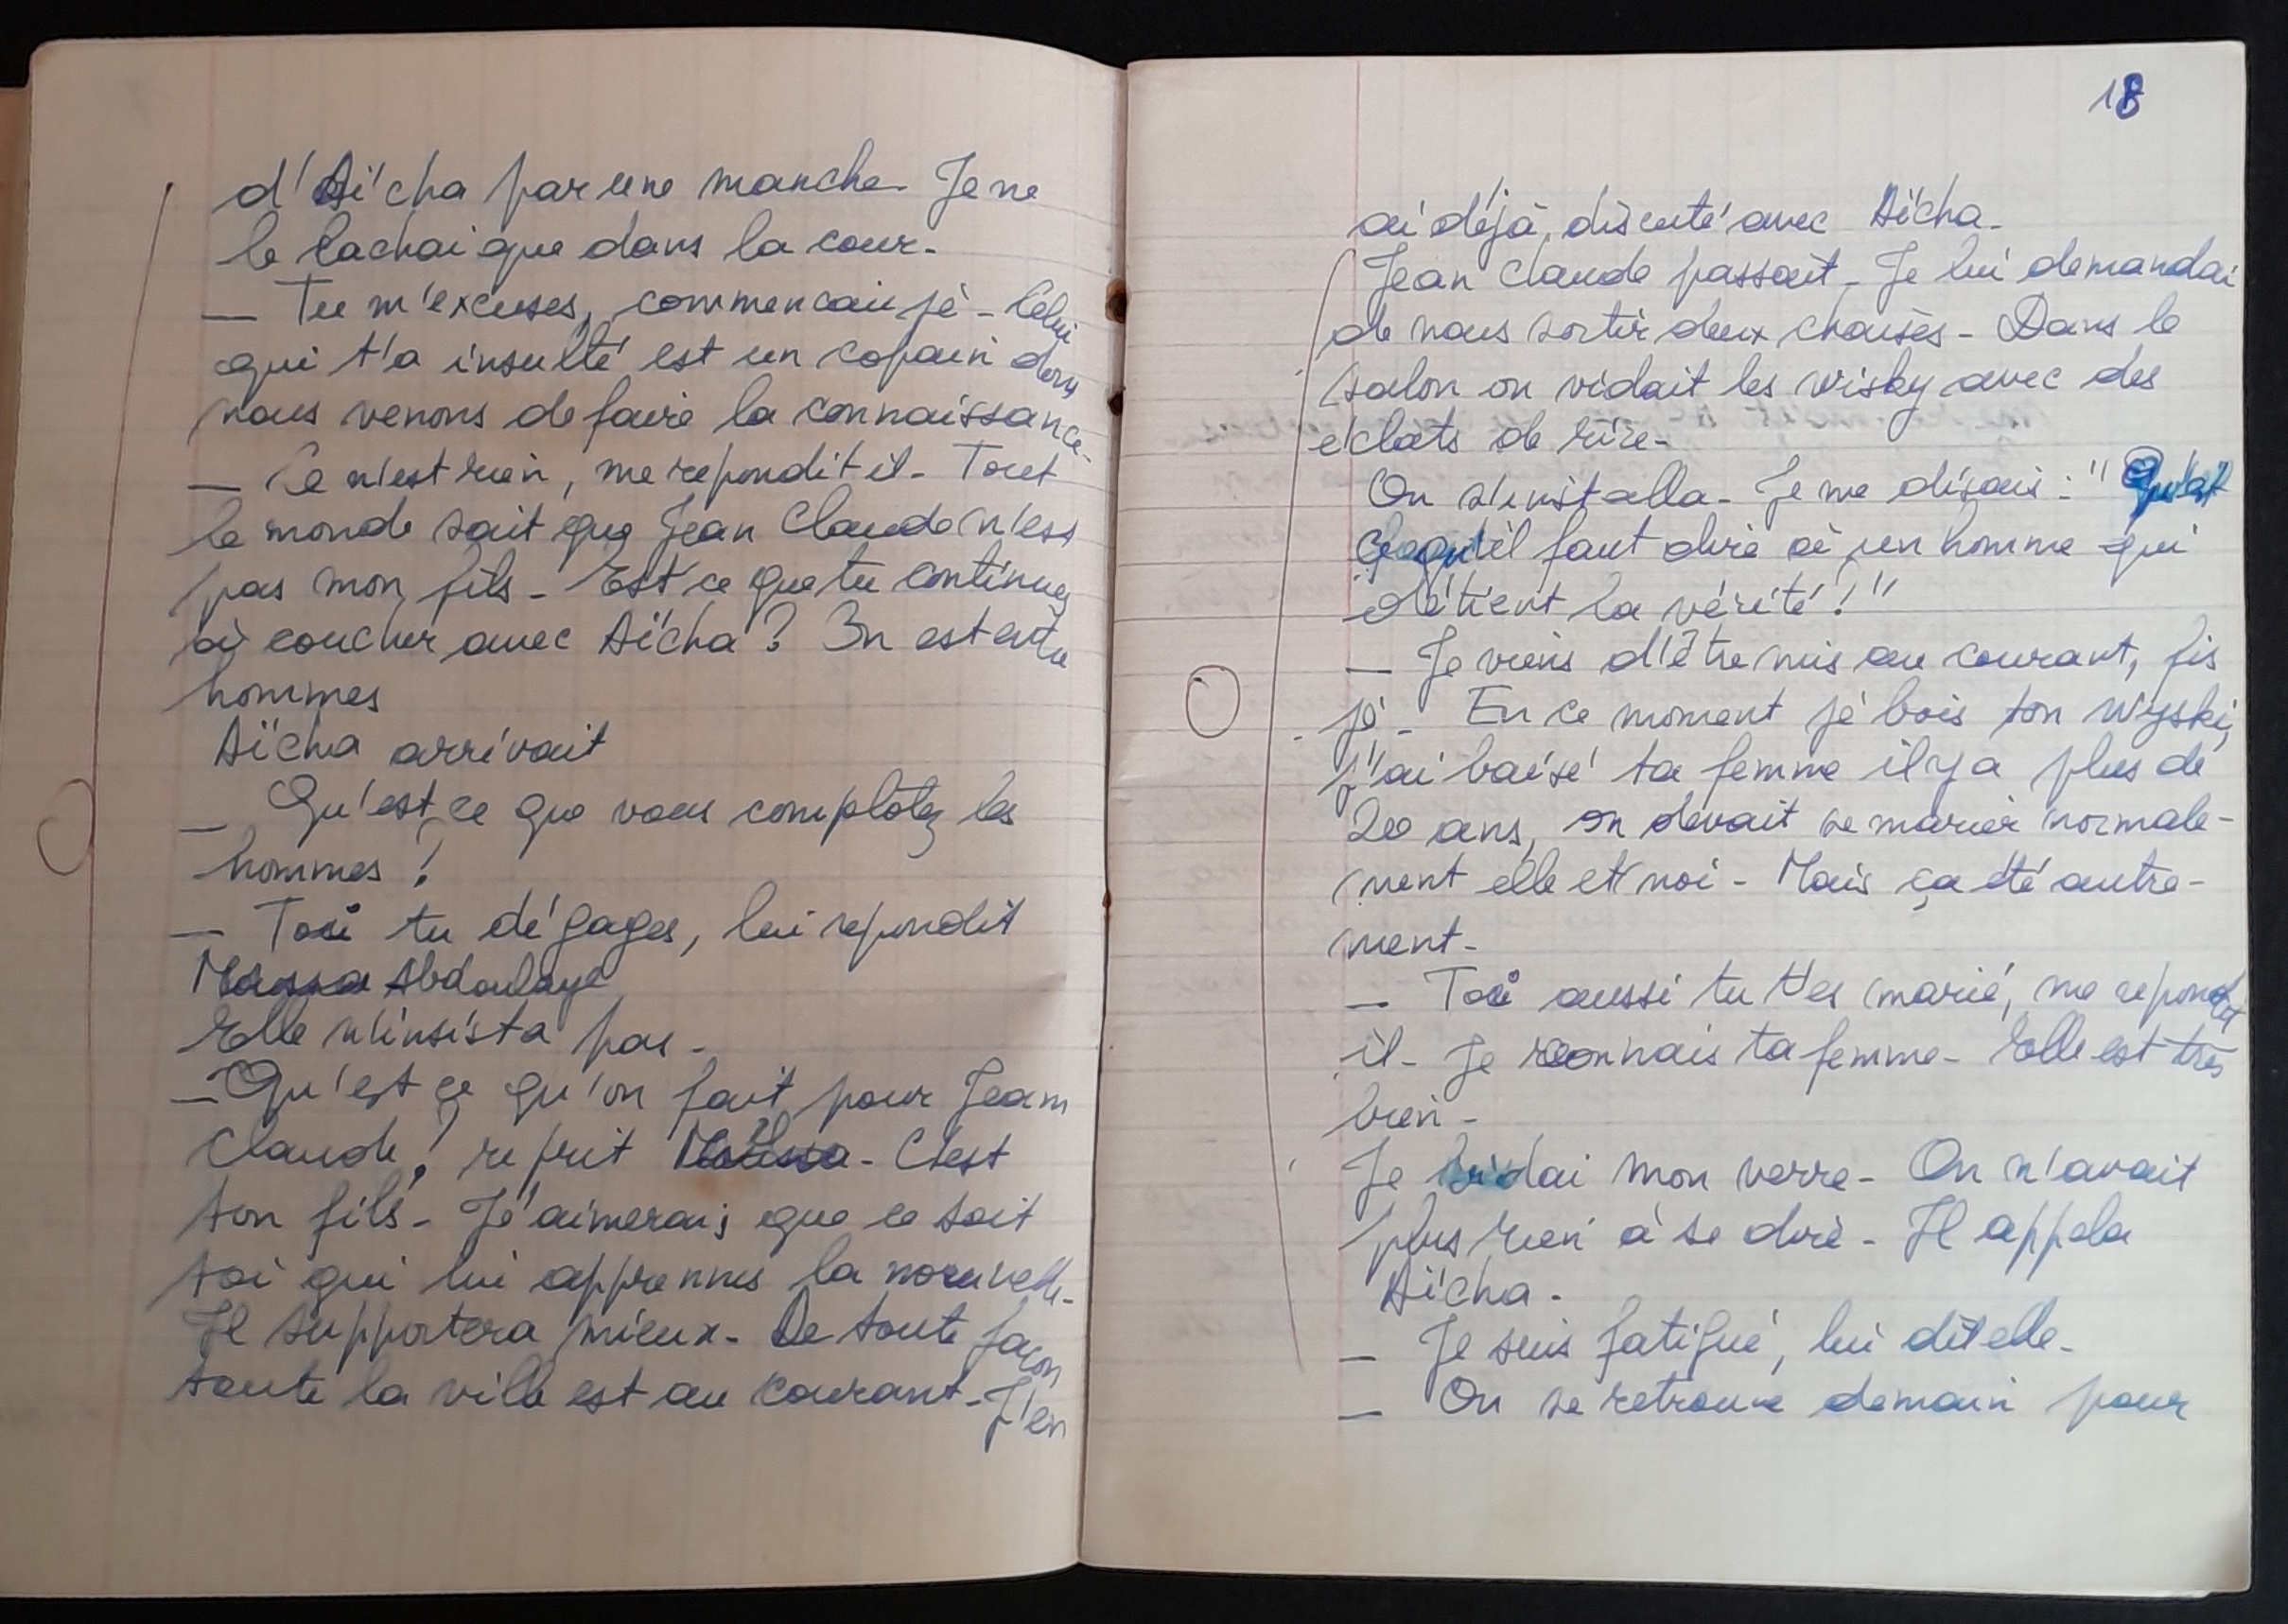 d'Aïcha par une manche. Je ne
le lachai que dans la cour.
— Tu m'excuses, commençai je - Celui
qui t'a insulté est un copain dont
nous venons de faire la connaissance.
— Ce n'est rien, me repondit il - Tout
le monde sait que Jean Claude n'est
pas mon fils - Est ce que tu continues
à coucher avec Aïcha ? On est entre
hommes
Aïcha arrivait
— Qu'est ce que vous complotez les
hommes ?
— Toi tu dégages, lui repondit
Moussa Abdoulaye
Elle n'insista pas -
— Qu'est ce qu'on fait pour Jean
Claude ? reprit Moussa - C'est
ton fils - J'aimerais que ce soit
toi qui lui apprennes la nouvelle -
Il supportera mieux - De toute façon
toute la ville est au courant - J'en
18
ai déjà discuté avec Aïcha -
Jean Claude passait - Je lui demandai
de nous sortir deux chaises - Dans le
salon on vidait les wisky avec des
éclats de rire -
On s'installa - Je me disais : " Qu'est
ce qu'il faut dire à un homme qui
détient la vérité ! "
— Je viens d'être mis au courant, fis
je - En ce moment je bois ton wyski,
j'ai baisé ta femme il y a plus de
20 ans, on devait se marier normale-
ment elle et moi - Mais ça été autre-
ment -
— Toi aussi tu t'es marié, me repondit
il - Je connais ta femme - Elle est très
bien -
Je vidai mon verre - On n'avait
plus rien à se dire - Il appela
Aïcha -
— Je suis fatigué, lui dit elle -
— On se retrouve demain pour